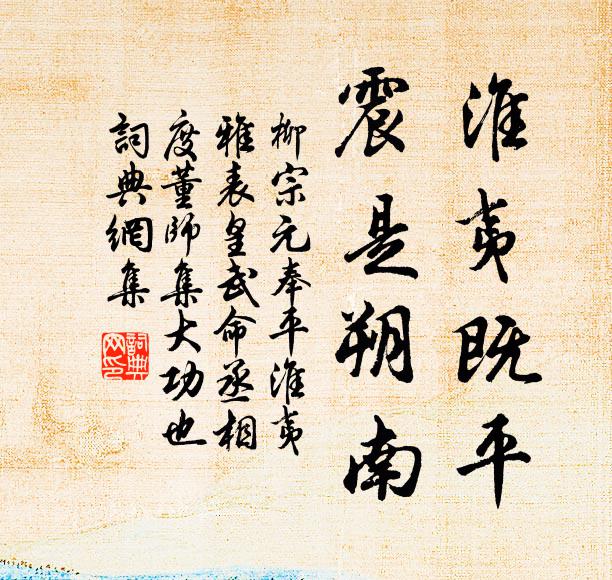 淮夷既平
震是朔南
柳宗元奉平淮夷
雅表皇武命丞相
度董師集大功也
詞典網集
詞典網印